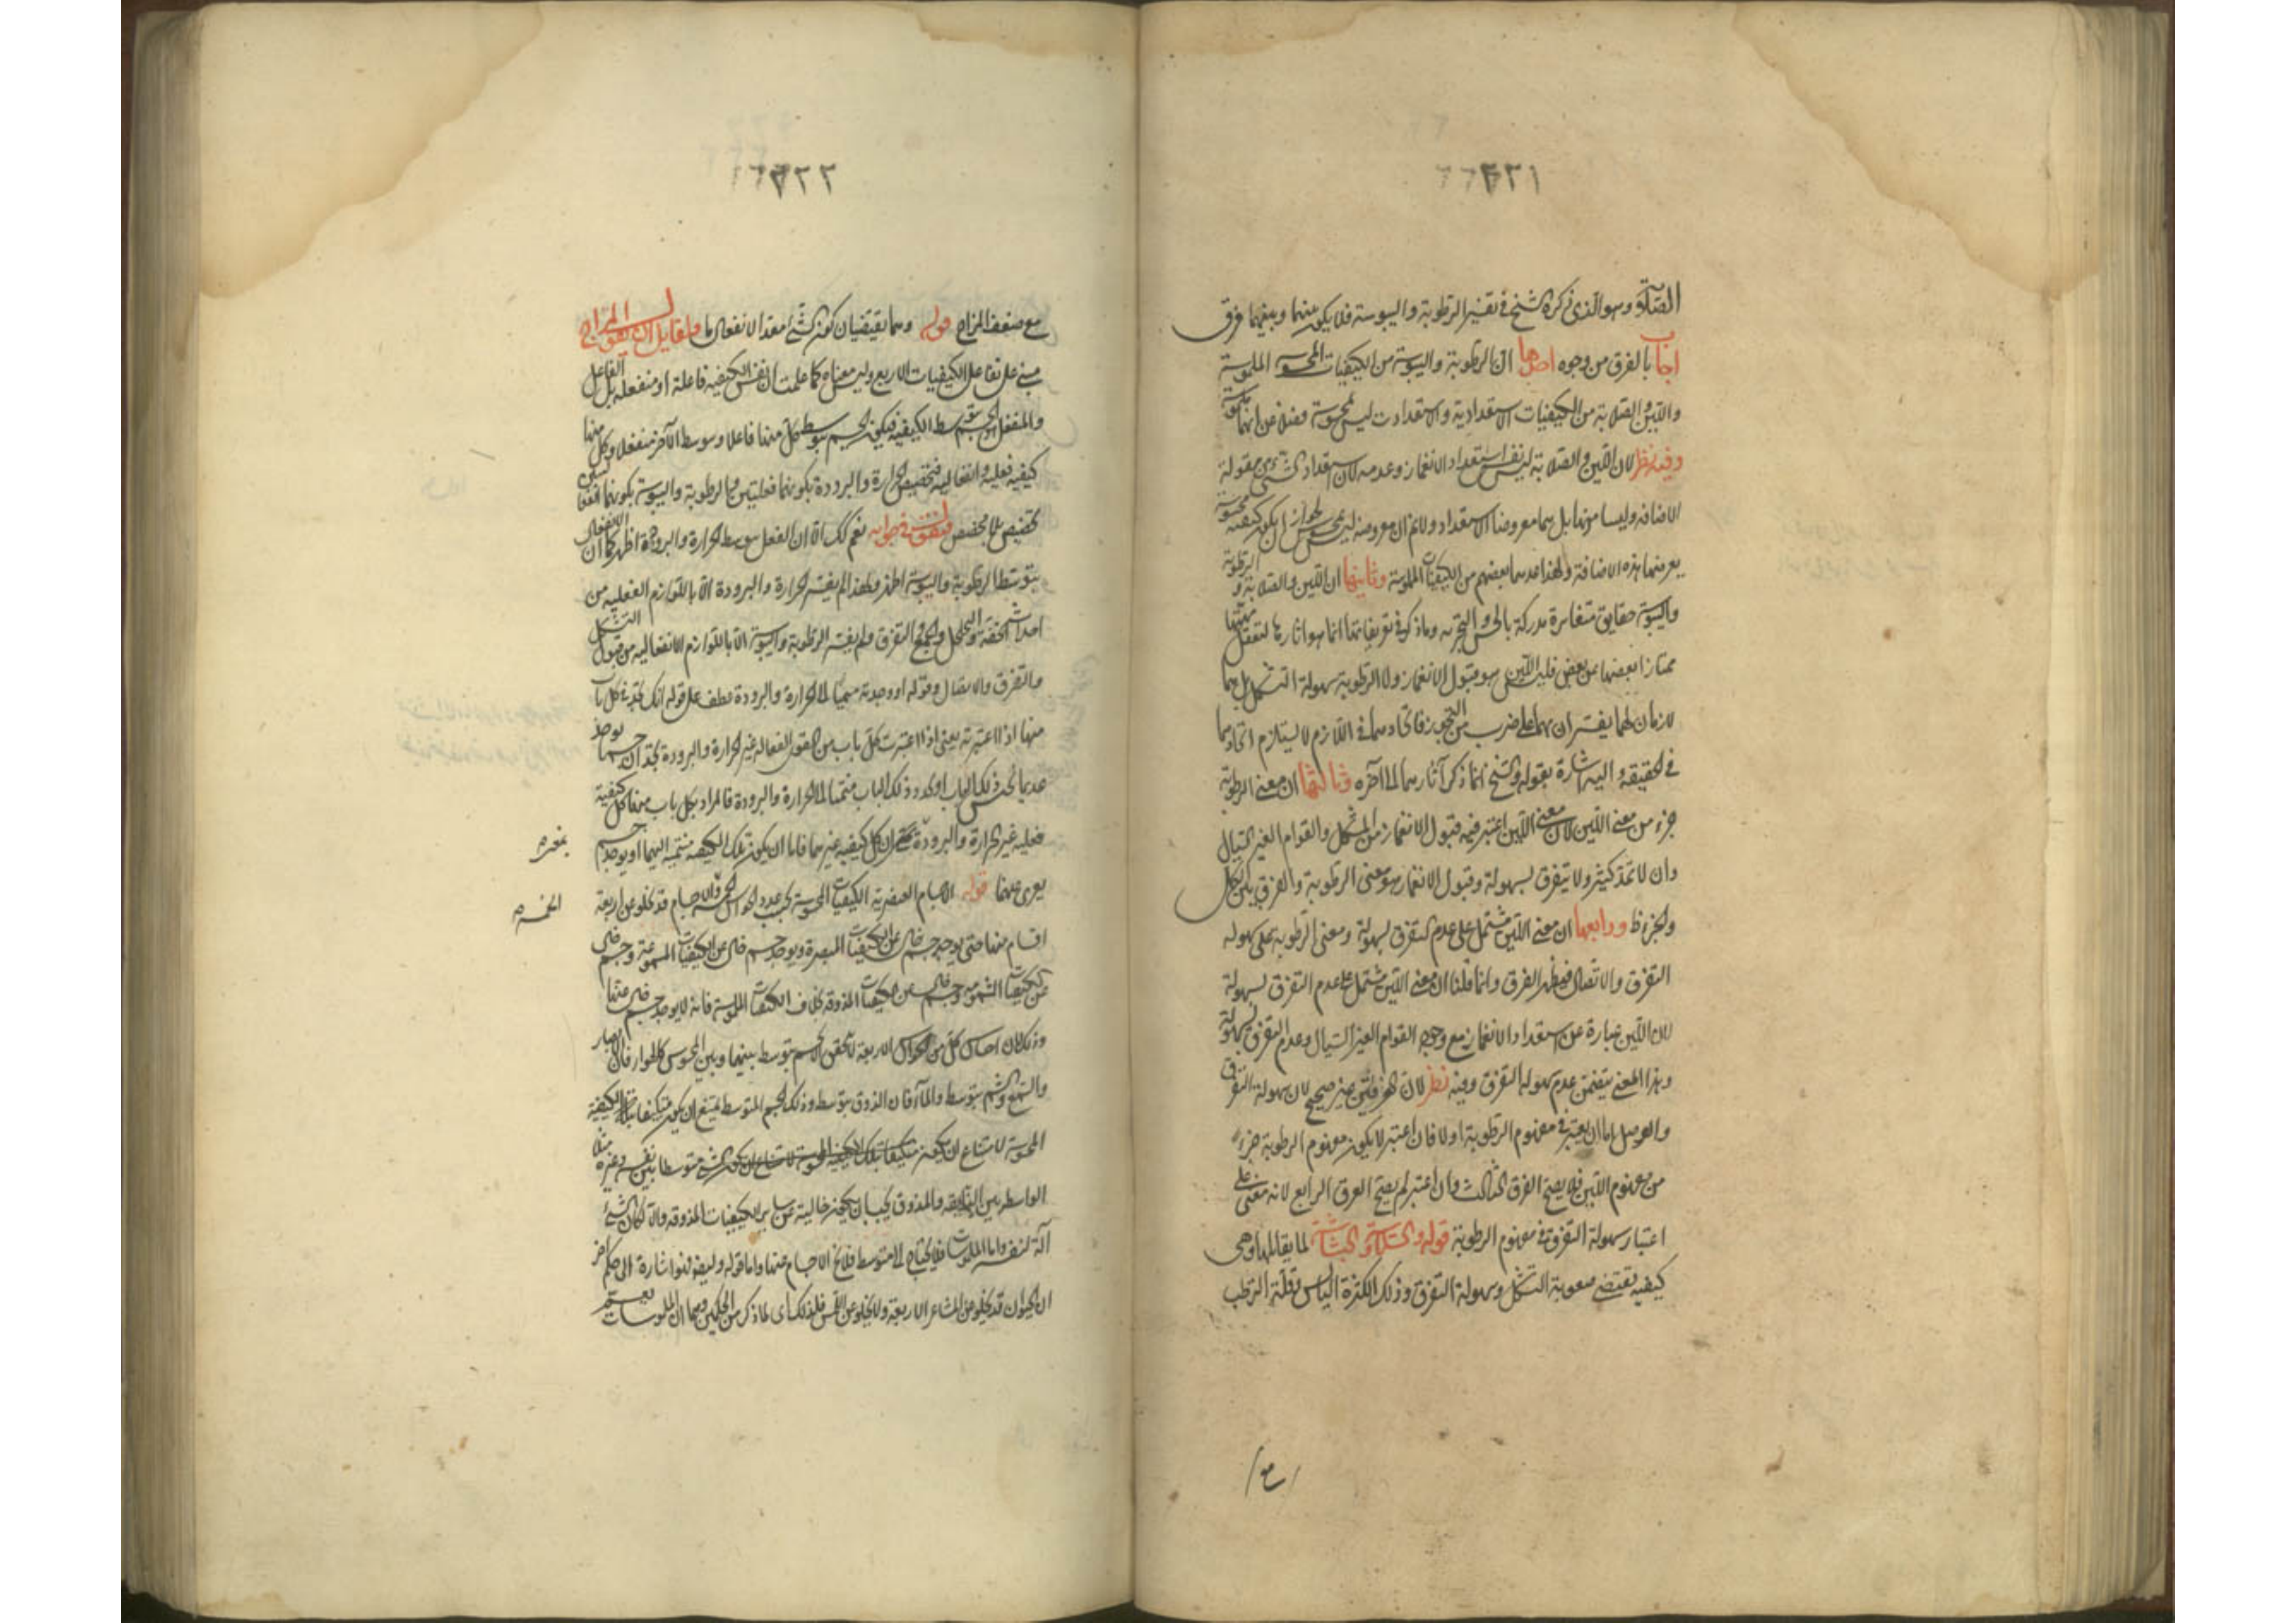 ٢٢١
الصلابة وهو الذي ذكره الشيخ في تفسير الرطوبة واليبوسة فلا يكون بينهما وبينهما فرق
اجاب بالفرق من وجوه احدها ان الرطوبة واليبوسة من الكيفيات المحسوسة الملموسة
واللين والصلابة من الكيفيات الاستعدادية والاستعدادات ليس محسوسة فضلا عن انها ملموسة
وفيه نظر لان اللين والصلابة ليس نفس استعداد الانغماز وعدمه لان استعداد الشيء من مقولة
الاضافة وليسا منها بل هما معروضا الاستعداد ولانم ان معروضه ليس بمحسوس لجواز ان يكون كيفية محسوسة
يعرضها هذه الاضافة ولهذا عدهما بعضهم من الكيفيات الملموسة وثانيها ان اللين والصلابة والرطوبة
واليبوسة حقايق متغايرة مدركة بالحس والتجربة وما ذكر في تعريفاتها انما هو اثارها لتعقل مهيتها
ممتازا بعضها عن بعض فليس اللين هو قبول الانغماز ولا الرطوبة سهولة التشكل بل هما
لازمان لهما يفسران بهما على ضرب من التجوز فاتحادهما في اللازم لا يستلزم اتحادهما
في الحقيقة واليه اشارة بقوله والشيخ انما ذكر آثارهما الى آخره وثالثها ان معنى الرطوبة
جزء من معنى اللين لان معنى اللين اعتبر فيه قبول الانغماز من التشكل والقوام الغير السيال
وان لا تمتد كثيرا ولا يتفرق بسهولة وقبول الانغماز هو معنى الرطوبة والفرق بين الكل
والجزء ظ ورابعها ان معنى اللين مشتمل على عدم التفرق بسهولة ومعنى الرطوبة على سهولة
التفرق والاتصال فيظهر الفرق وانما قلنا ان معنى اللين مشتمل على عدم التفرق بسهولة
لان اللين عبارة عن استعداد الانغماز مع وجود القوام الغير السيال وعدم التفرق بسهولة
وهذا المعنى يتضمن عدم سهولة التفرق وفيه نظر لان الفرقين غير صحيح لان سهولة التفرق
والوصل اما ان يعتبر في مفهوم الرطوبة او لا فان اعتبر لا يكون مفهوم الرطوبة جزء
من مفهوم اللين فلا يصح الفرق الثالث وان اعتبر لم يصح الفرق الرابع لانه مبنى على
اعتبار سهولة التفرق في مفهوم الرطوبة قوله والهشاشة لما يقابلها وهي
كيفية تقتضي صعوبة التشكل وسهولة التفرق وذلك لكثرة اليابس وقلة الرطب
٢٢٢
مع ضعف المزاج قوله وهما يقتضيان كون الشيء معد الانفعال ما
مبنى على تفاعل الكيفيات الاربع وليس معناه كما علمت ان نفس الكيفية فاعلة او منفعلة بل الفاعل
والمنفعل الجسم بتوسط الكيفية فيكون الجسم بتوسط كل منها فاعلا وبتوسط الآخر منفعلا وكل منها
كيفية فعلية وانفعالية فتخصيص الحرارة والبرودة بكونهما فعليتين والرطوبة واليبوسة بكونهما انفعاليتين
تخصيص بلا مخصص فنقول في جوابه نعم كك الا ان الفعل بتوسط الحرارة والبرودة اظهر كما ان الانفعال
بتوسط الرطوبة واليبوسة اظهر ولهذا لم يفسر الحرارة والبرودة الا باللوازم الفعلية من
احداث الخفة والتخلخل والجمع والتفرق ولم يفسر الرطوبة واليبوسة الا باللوازم الانفعالية من قبول التشكل
والتفرق والاتصال وقوله او وجدته منتميا الى الحرارة والبرودة عطف على قوله انك تجد في كل باب
منها اذا اعتبرته يعني اذا اعتبرت كل باب من القوى الفعالة غير الحرارة والبرودة تجد ان جسما يوجد
عديما لجنس ذلك الباب او تجد ذلك الباب منتميا الى الحرارة والبرودة فالمراد بكل باب منها كل كيفية
فعلية غير الحرارة والبرودة كل كيفية غيرهما فاما ان يكون تلك الكيفية منتمية اليهما او يوجد جسم
يعرى عنها قوله الاجسام العنصرية الكيفيات المحسوسة بحسب عدد الحواس والاجسام قد تخلو عن اربعة
اقسام منها حتى يوجد جسم خال عن الكيفيات المبصرة ويوجد جسم خال عن الكيفيات المسموعة وجسم خال
عن الكيفيات المشمومة وجسم خال عن كيفيات المذوقة بخلاف الكيفيات الملموسة فانه لا يوجد جسم خال عنها
وذلك لان احساس كل من الحواس الاربعة لا يتحقق الا بجسم متوسط بينهما وبين المحسوس كالهواء فان الابصار
والسمع والشم بتوسطه والماء فان الذوق بتوسطه وذلك الجسم المتوسط يمتنع ان يكون متكيفا بتلك الكيفية
المحسوسة لامتناع ان يكون الشيء متوسطا بين نفسه وغيره مثلا
الواسطة بين الذايقة والمذوق يجب ان يكون خالية عن ساير الكيفيات المذوقة والا لكان الشيء
آلة لنفسه واما الملموسات فلا يحتاج الى متوسط فلا تخلو الاجسام عنها واما قوله وليضه فهو اشارة الى حكم آخر
ان الحيوان قد يخلو عن المشاعر الاربعة ولا يخلو عن اللمس فلذلك اي لما ذكر من الحكمين وهما ان الملموسات